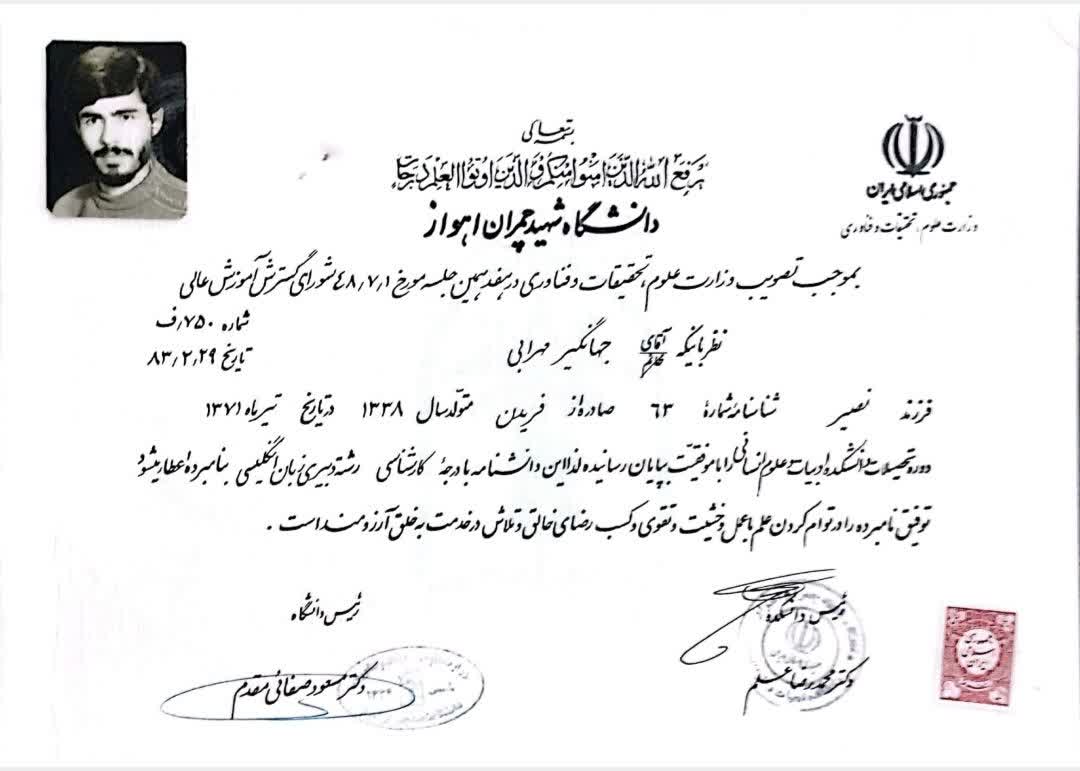 بسمه تعالی
یرفع الله الذین امنوا منکم و الذین اوتوا العلم درجات
جمهوری اسلامی ایران
وزارت علوم، تحقیقات و فناوری
دانشگاه شهید چمران اهواز
بموجب تصویب وزارت علوم، تحقیقات و فناوری در هفدهمین جلسه مورخ ٤٨٫٧٫١ شورای گسترش آموزش عالی
شماره ٧٥٠٫ف
تاریخ ٨٣٫٢٫٢٩
نظر باینکه آقای خانم جهانگیر مهرابی
فرزند نصیر شناسنامه شمارهٔ ٦٣ صادره از فریدن متولد سال ١٣٣٨ در تاریخ تیر ماه ١٣٧١
دوره تحصیلات دانشکده ادبیات و علوم انسانی را با موفقیت بپایان رسانیده لذا این دانشنامه با درجهٔ کارشناسی رشته دبیری زبان انگلیسی بنامبرده اعطا میشود
توفیق نامبرده را در توام کردن علم با عمل و خشیت و تقوی و کسب رضای خالق و تلاش در خدمت به خلق آرزومند است .
رئیس دانشکده
رئیس دانشگاه
دکتر محمدرضا علم
دکتر مسعود صفائی مقدم
جمهوری
اسلامی
ایران